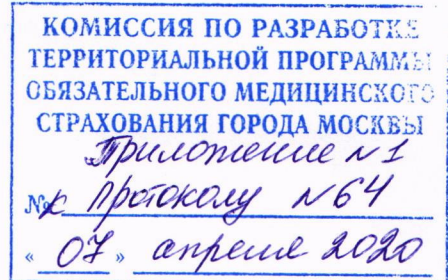 КОМИССИЯ ПО РАЗРАБОТКЕ
ТЕРРИТОРИАЛЬНОЙ ПРОГРАММЫ
ОБЯЗАТЕЛЬНОГО МЕДИЦИНСКОГО
СТРАХОВАНИЯ ГОРОДА МОСКВЫ
Приложение №1
№ к Протоколу №64
« 07 » апреля 2020